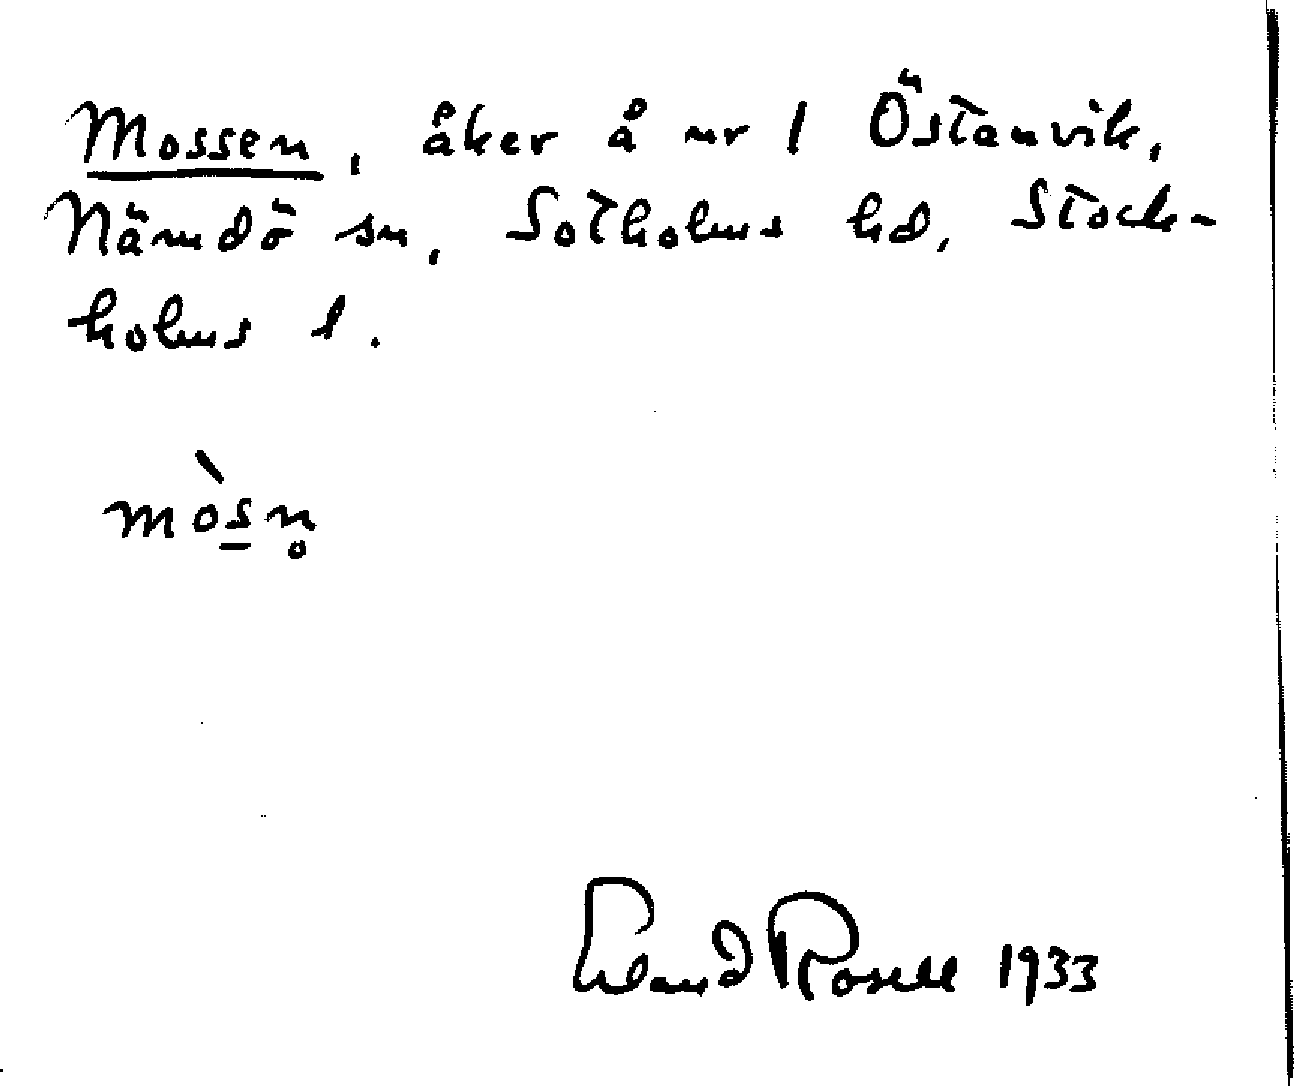 Mossen, åker å nr 1 Östanvik,
Nämdö sn, Sotholms hd, Stock-
holms l.
mòs̲n̥
Erland Rosell 1933